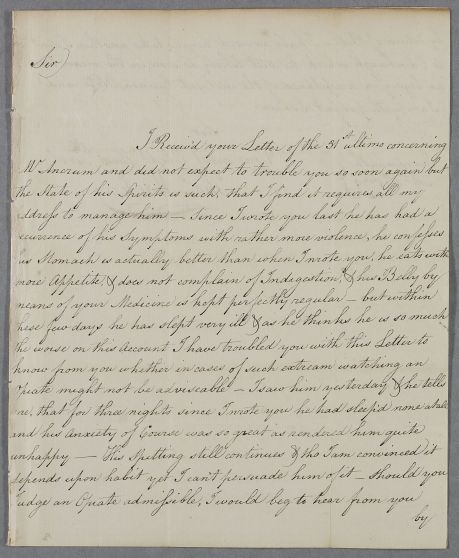 Sir,
I Receiv'd your Letter of the 31st ultimo concerning
Mr Ancrum and did not expect to trouble you so soon again but
the State of his Spirits is such, that I find it requires all my
address to manage him — Since I wrote you last he has had a
recurrence of his Symptoms with rather more violence, he confesses
his Stomach is actually better than when I wrote you, he eats with
more Appetite, & does not complain of Indigestion, & his Belly by
means of your Medicine is kept perfectly regular — but within
these few days he has slept very ill & as he thinks he is so much
the worse on this Account I have troubled you with this Letter to
know from you whether in cases of such extream watching an
Opiate might not be adviseable — I saw him yesterday & he tells
me, that for three nights since I wrote you he had sleep'd none at all
and his Anxiety of Course was so great as rendered him quite
unhappy — His Spitting still continues & tho I am convinced it
depends upon habit yet I cant persuade him of it — Should you
Judge an Opiate admissible, I would beg to hear from you
by